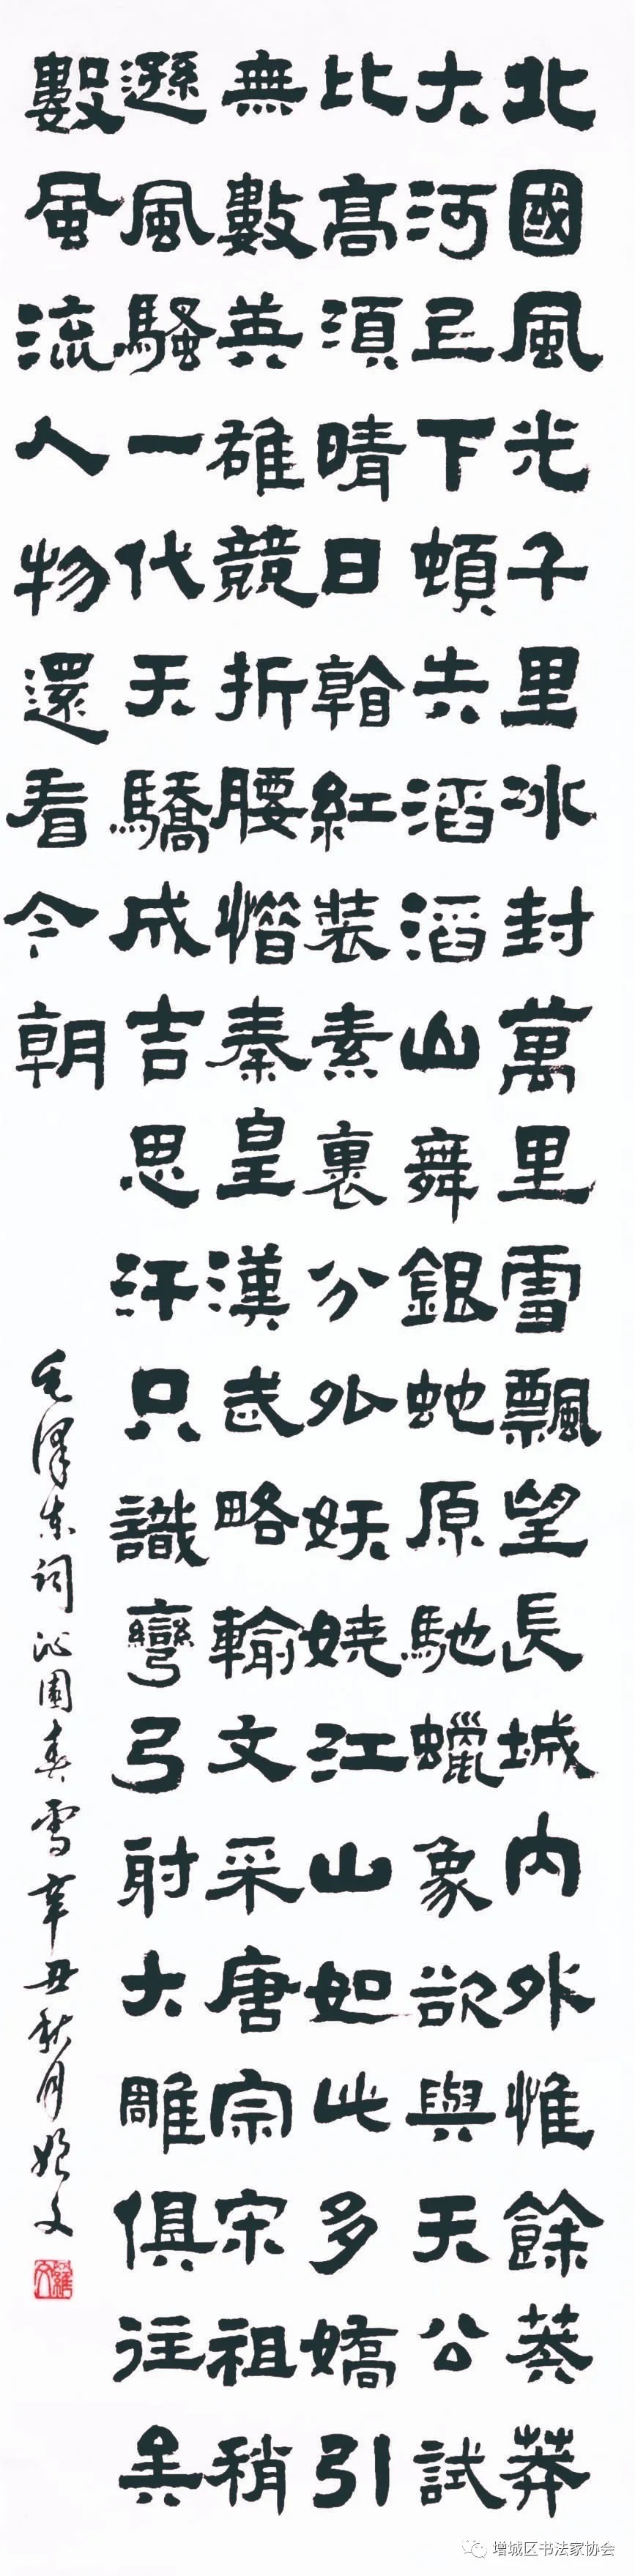 北國風光千里冰封萬里雪飄望長城內外惟餘莽莽
大河上下頓失滔滔山舞銀蛇原馳蠟象欲與天公試
比高須晴日看紅裝素裹分外妖嬈江山如此多嬌引
無數英雄競折腰惜秦皇漢武略輸文采唐宗宋祖稍
遜風騷一代天驕成吉思汗只識彎弓射大雕俱往矣
數風流人物還看今朝
毛澤東詞沁園春雪辛丑秋月文
增城区书法家协会